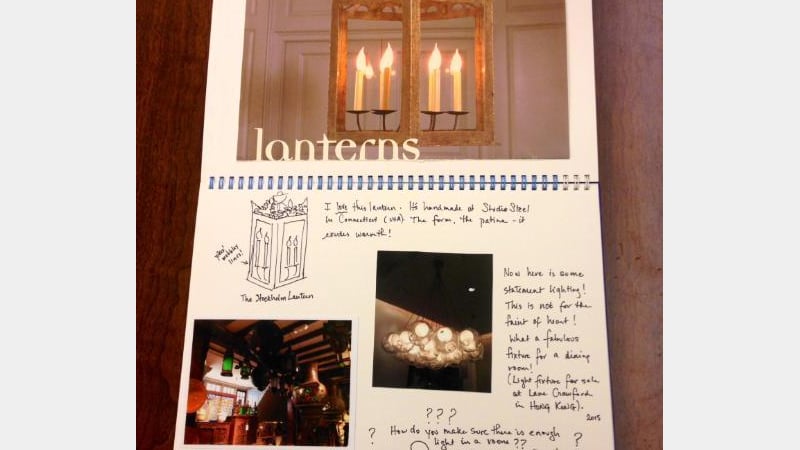 lanterns
I love this lantern. It's handmade at Studio Steel
in Connecticut (USA). The form, the patina - it
exudes warmth!
yikes!
wobbly
lines!
The Stockholm Lantern
Now here is some
statement lighting!
This is not for the
faint of heart!
What a fabulous
fixture for a dining
room!
(Light fixture for sale
at Lane Crawford
in HONG KONG).
2015
???
? How do you make sure there is enough
light in a room ?? ?